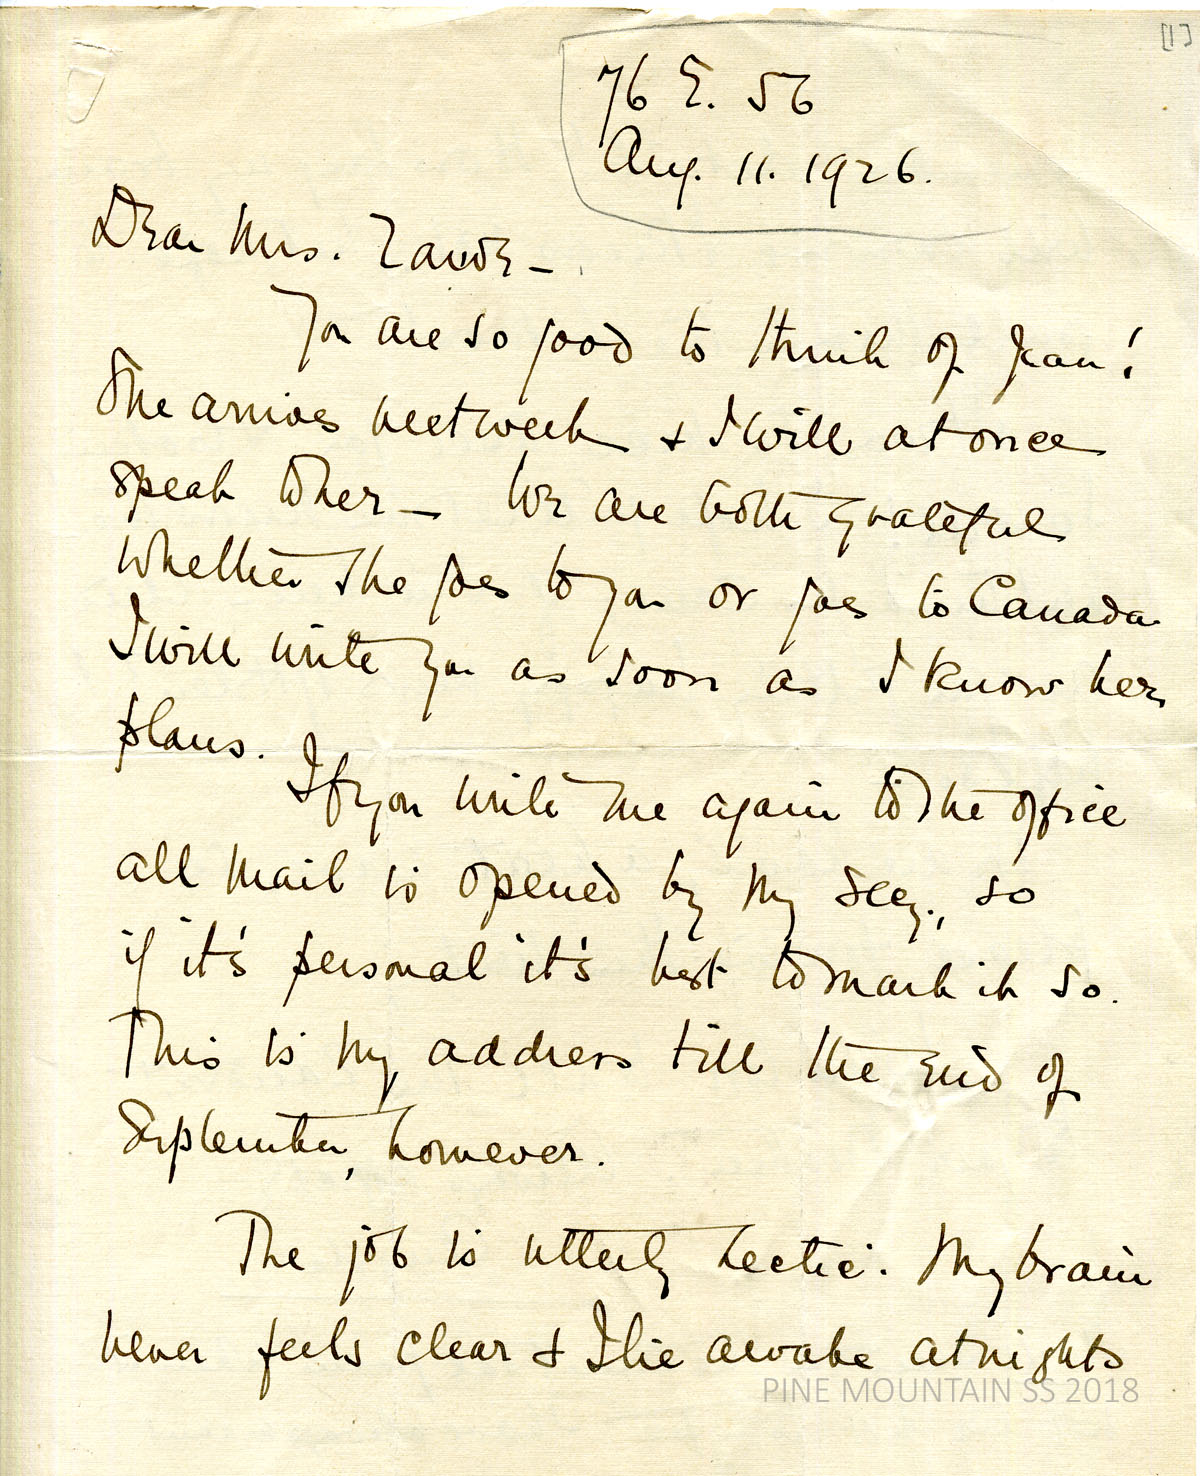 [1]
76 E. 56
Aug. 11. 1926.
Dear Mrs. Zande –
You are so good to think of Jean!
She arrives next week & I will at once
speak to her – We are both grateful
whether she goes to you or goes to Canada.
I will write you as soon as I know her
plans.
If you write me again to the office
all mail is opened by my secy., so
if it's personal it's best to mark it so.
This is my address till the end of
September, however.
The job is utterly hectic. My brain
never feels clear & I lie awake at nights
PINE MOUNTAIN SS 2018